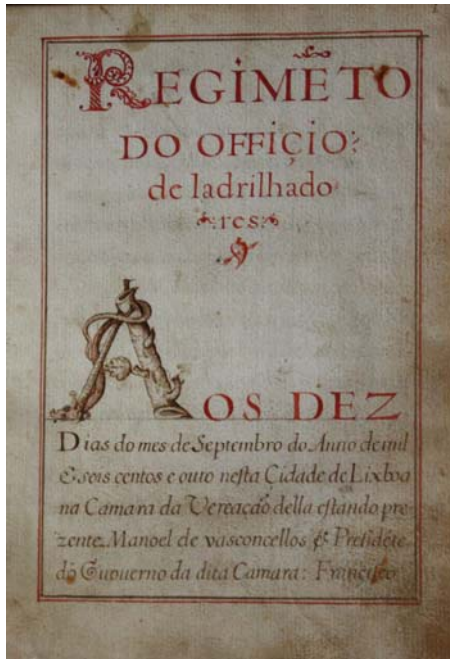 REGIMẼTO
DO OFFIÇIO
de ladrilhado
res
AOS DEZ
Dias do mes de Septembro do Anno de mil
& seis centos e outo nesta Çidade de Lixboa
na Camara da Vereação della estando pre
zente Manoel de vasconcellos & Presidẽte
do Guouerno da dita Camara: Francisco